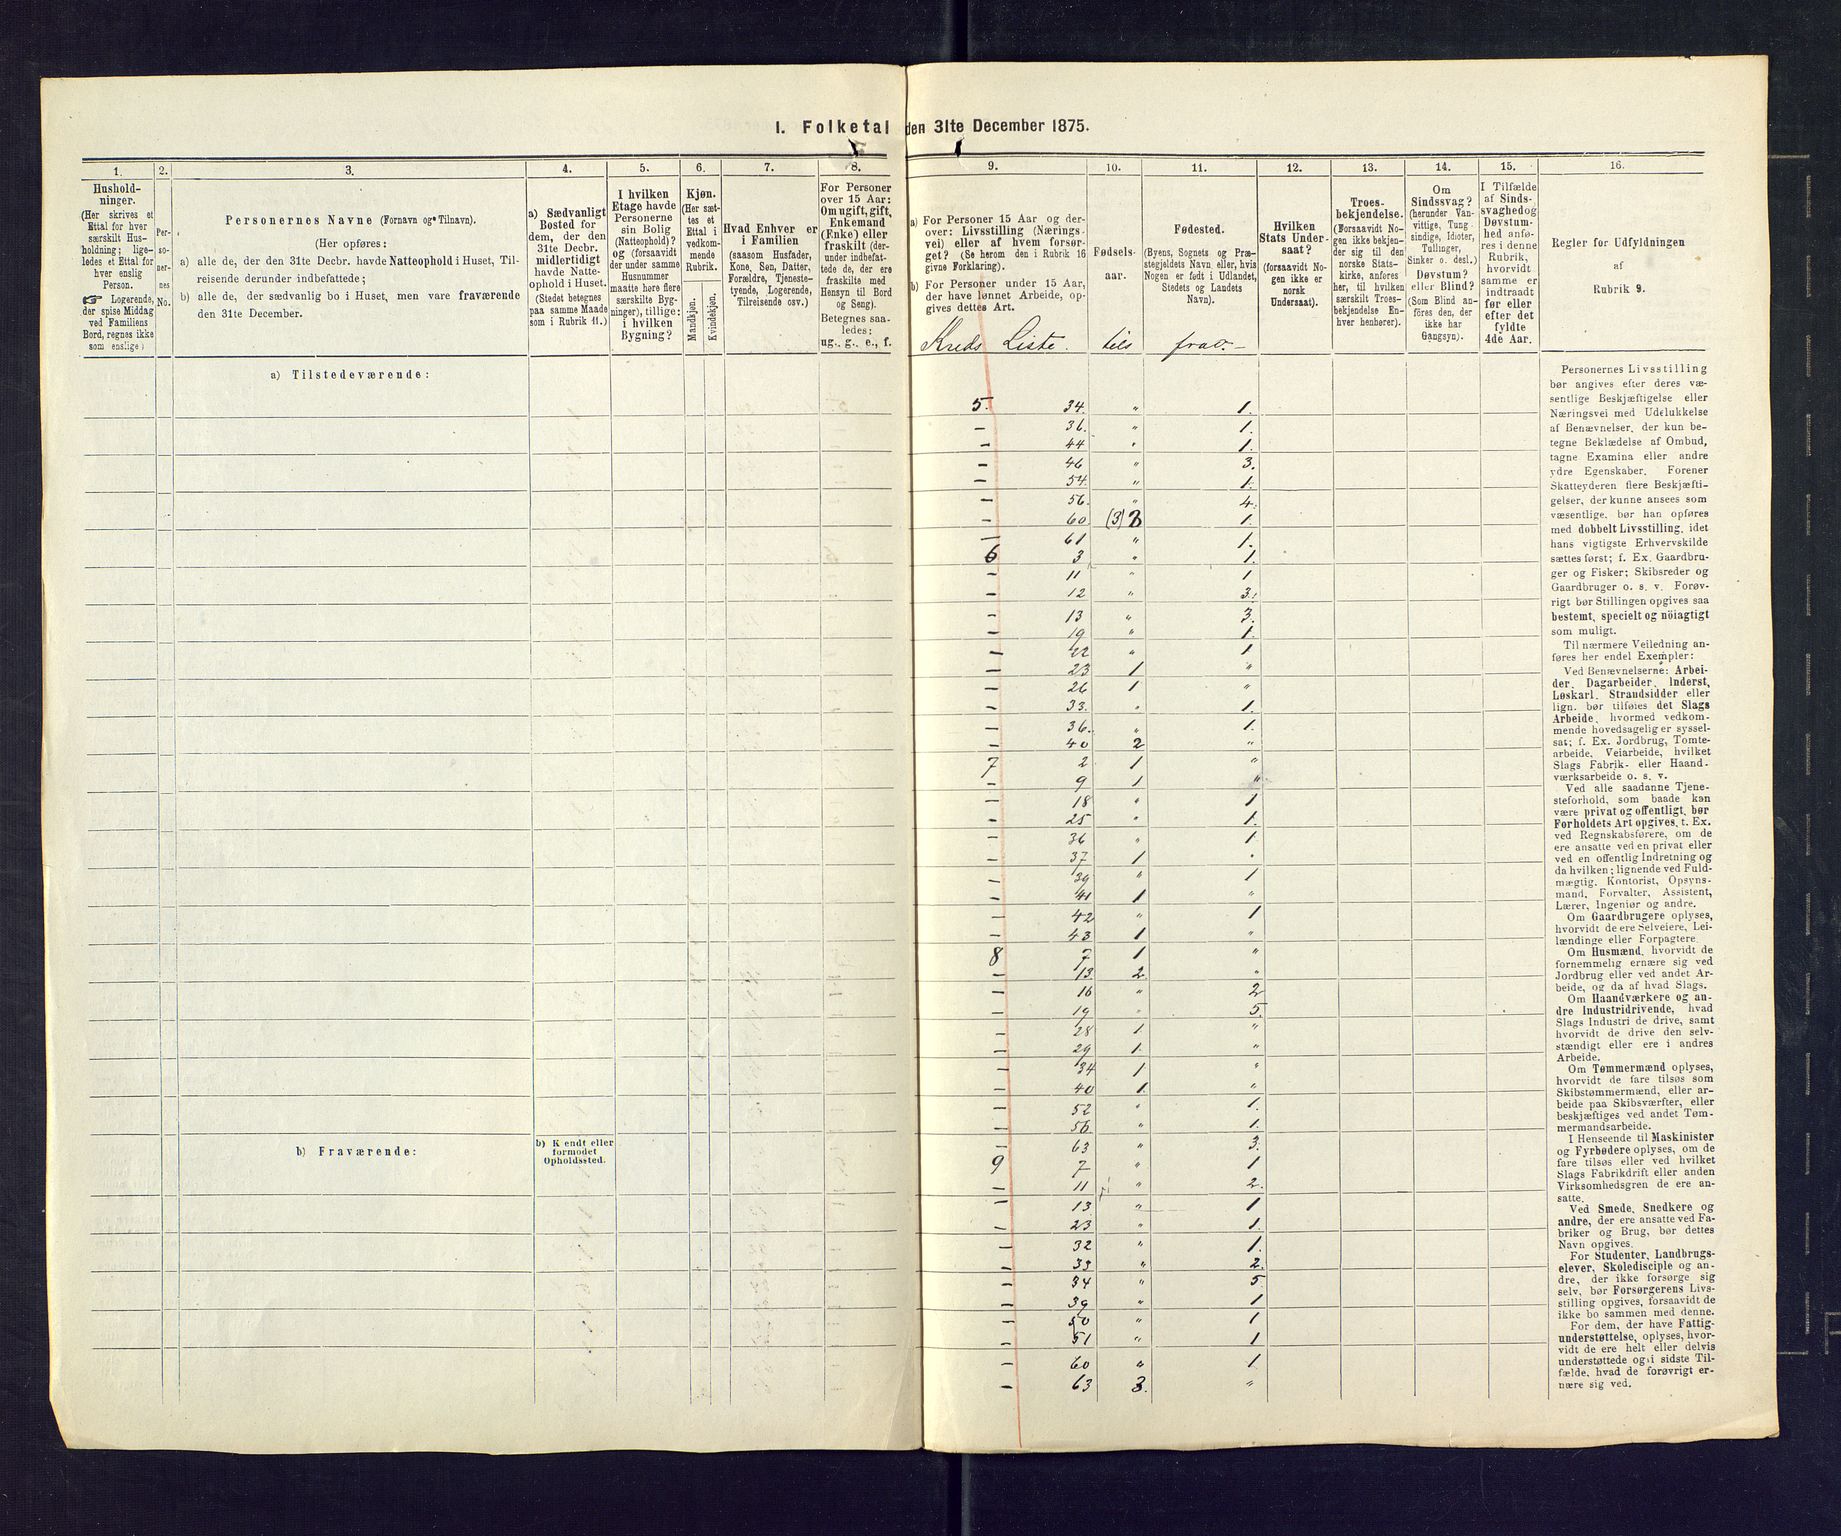 I. Folketal den 31te December 1875.
1.
Hushold-
ninger.
(Her skrives et
Ettal for hver
særskilt Hus-
holdning; lige-
ledes et Ettal for
hver enslig
Person.
☞ Logerende,
der spise Middag
ved Familiens
Bord, regnes ikke
som enslige)
2.
Per-
so-
ner-
nes
No.
3.
Personernes Navne (Fornavn og Tilnavn).
(Her opføres:
a) alle de, der den 31te Decbr. havde Natteophold i Huset, Til-
reisende derunder indbefattede;
b) alle de, der sædvanlig bo i Huset, men vare fraværende
den 31te December.
4.
a) Sædvanligt
Bosted for
dem, der den
31te Decbr.
midlertidigt
havde Natte-
ophold i Huset.
(Stedet betegnes
paa samme Maade
som i Rubrik 11.)
5.
I hvilken
Etage havde
Personerne
sin Bolig
(Natteophold)?
og (forsaavidt
der under samme
Husnummer
maatte høre flere
særskilte Byg-
ninger), tillige:
i hvilken
Bygning?
6.
Kjøn.
(Her sæt-
tes et
Ettal i
vedkom-
mende
Rubrik.
Mandkjøn.
Kvindekjøn.
7.
Hvad Enhver er
i Familien
(saasom Husfader,
Kone, Søn, Datter,
Forældre, Tjeneste-
tyende, Logerende,
Tilreisende osv.)
8.
For Personer
over 15 Aar:
Om ugift, gift,
Enkemand
(Enke) eller
fraskilt (der-
under indbefat-
tede de, der ere
fraskilte med
Hensyn til Bord
og Seng).
Betegnes saa-
ledes:
ug., g., e., f.
9.
a) For Personer 15 Aar og der-
over: Livsstilling (Nærings-
vei) eller af hvem forsør-
get? (Se herom den i Rubrik 16
givne Forklaring).
b) For Personer under 15 Aar,
der have lønnet Arbeide, op-
gives dettes Art.
10.
Fødsels-
aar.
11.
Fødested.
(Byens, Sognets og Præ-
stegjeldets Navn eller, hvis
Nogen er født i Udlandet,
Stedets og Landets
Navn).
12.
Hvilken
Stats Under-
saat?
(forsaavidt No-
gen ikke er
norsk
Undersaat).
13.
Troes-
bekjendelse.
(Forsaavidt No-
gen ikke bekjen-
der sig til den
norske Stats-
kirke, anføres
her, til hvilken
særskilt Troes-
bekjendelse En-
hver henhører).
14.
Om
Sindssvag?
(herunder Van-
vittige, Tung-
sindige, Idioter,
Tullinger,
Sinker o. desl.)
Døvstum?
eller Blind?
(Som Blind an-
føres den, der
ikke har
Gangsyn).
15.
I Tilfælde
af Sinds-
svaghed og
Døvstum-
hed anfø-
res i denne
Rubrik,
hvorvidt
samme er
indtraadt
før eller
efter det
fyldte
4de Aar.
16.
Regler før Udfyldningen
af
Rubrik 9.
Kreds Liste. tils fra.
a) Tilstedeværende:
5. 34. " 1.
— 36. " 1.
— 44 " 1.
— 46 " 3.
— 54. " 1.
— 56. " 4.
— 60 (3) 3 1.
— 61 " 1.
6 3 " 1.
— 11 " 1
— 12 " 3.
— 13 " 3.
— 19 " 1.
— 22 " 1
— 23 1 "
— 26 1 "
— 33. " 1.
— 36. " 1.
— 40 2 "
7 2 1 "
— 9 1 "
— 18 " 1
— 25 " 1.
— 36 " 1.
— 37 1 "
— 39 " 1
— 41 1 "
— 42 " 1
— 43 1 "
8 7 1 "
— 13. 2. "
— 16 " 2
— 19 " 5.
— 28 1. "
— 29 1. "
— 34 1 "
— 40 1. "
— 52 " 1.
— 56. " 1.
— 63 " 3.
9 7 " 1
— 11 " 2.
— 13. " 1
— 23 " 1.
— 32 " 1.
— 33 " 2.
— 34 " 5
— 39 " 1
— 50 " 1
— 51 " 1
— 60 " 1.
— 63 3. "
b) Fraværende:
b) Kjendt eller
formodet
Opholdssted.
Personernes Livsstilling
bør angives efter deres væ-
sentlige Beskjæftigelse eller
Næringsvei med Udelukkelse
af Benævnelser, der kun be-
tegne Beklædelse af Ombud,
tagne Examina eller andre
ydre Egenskaber. Forener
Skatteyderen flere Beskjæfti-
gelser, der kunne ansees som
væsentlige, bør han opføres
med dobbelt Livsstilling, idet
hans vigtigste Erhvervskilde
sættes først; f. Ex. Gaardbru-
ger og Fisker; Skibsreder og
Gaardbruger o. s. v. Forøv-
rigt bør Stillingen opgives saa
bestemt, specielt og nöiagtigt
som muligt.
Til nærmere Veiledning an-
føres her endel Exempler:
Ved Benævnelserne: Arbei-
der, Dagarbeider, Inderst,
Løskarl, Strandsidder eller
lign. bør tilføies det Slags
Arbeide, hvormed vedkom-
mende hovedsagelig er syssel-
sat; f. Ex. Jordbrug, Tomte-
arbeide, Veiarbeide, hvilket
Slags Fabrik- eller Haand-
værksarbeide o. s. v.
Ved alle saadanne Tjene-
steforhold, som baade kan
være privat og offentligt, bør
Forholdets Art opgives, t. Ex.
ved Regnskabsførere, om de
ere ansatte ved en privat eller
ved en offentlig Indretning og
da hvilken; lignende ved Fuld-
mægtig, Kontorist, Opsyns-
mand, Forvalter, Assistent,
Lærer, Ingeniør og andre.
Om Gaardbrugere oplyses,
hvorvidt de ere Selveiere, Lei-
lændinge eller Forpagtere.
Om Husmænd, hvorvidt de
fornemmelig ernære sig ved
Jordbrug eller ved andet Ar-
beide, og da af hvad Slags.
Om Haandværkere og an-
dre Industridrivende, hvad
Slags Industri de drive, samt
hvorvidt de drive den selv-
stændigt eller ere i andres
Arbeide.
Om Tømmermænd oplyses,
hvorvidt de fare tilsøs som
Skibstømmermænd, eller ar-
beide paa Skibsværfter, eller
beskjæftiges ved andet Tøm-
mermandsarbeide.
I Henseende til Maskinister
og Fyrbødere oplyses, om de
fare tilsøs eller ved hvilket
Slags Fabrikdrift eller anden
Virksomhedsgren de ere an-
satte.
Ved Smede, Snedkere og
andre, der ere ansatte ved Fa-
briker og Brug, bør dettes
Navn opgives.
For Studenter, Landbrugs-
elever, Skoledisciple og an-
dre, der ikke forsørge sig
selv, bør Forsørgerens Livs-
stilling opgives, forsaavidt de
ikke bo sammen med denne.
For dem, der have Fattig-
understøttelse, oplyses, hvor-
vidt de ere helt eller delvis
understøttede og i sidste Til-
fælde, hvad de forøvrigt er-
nære sig ved.